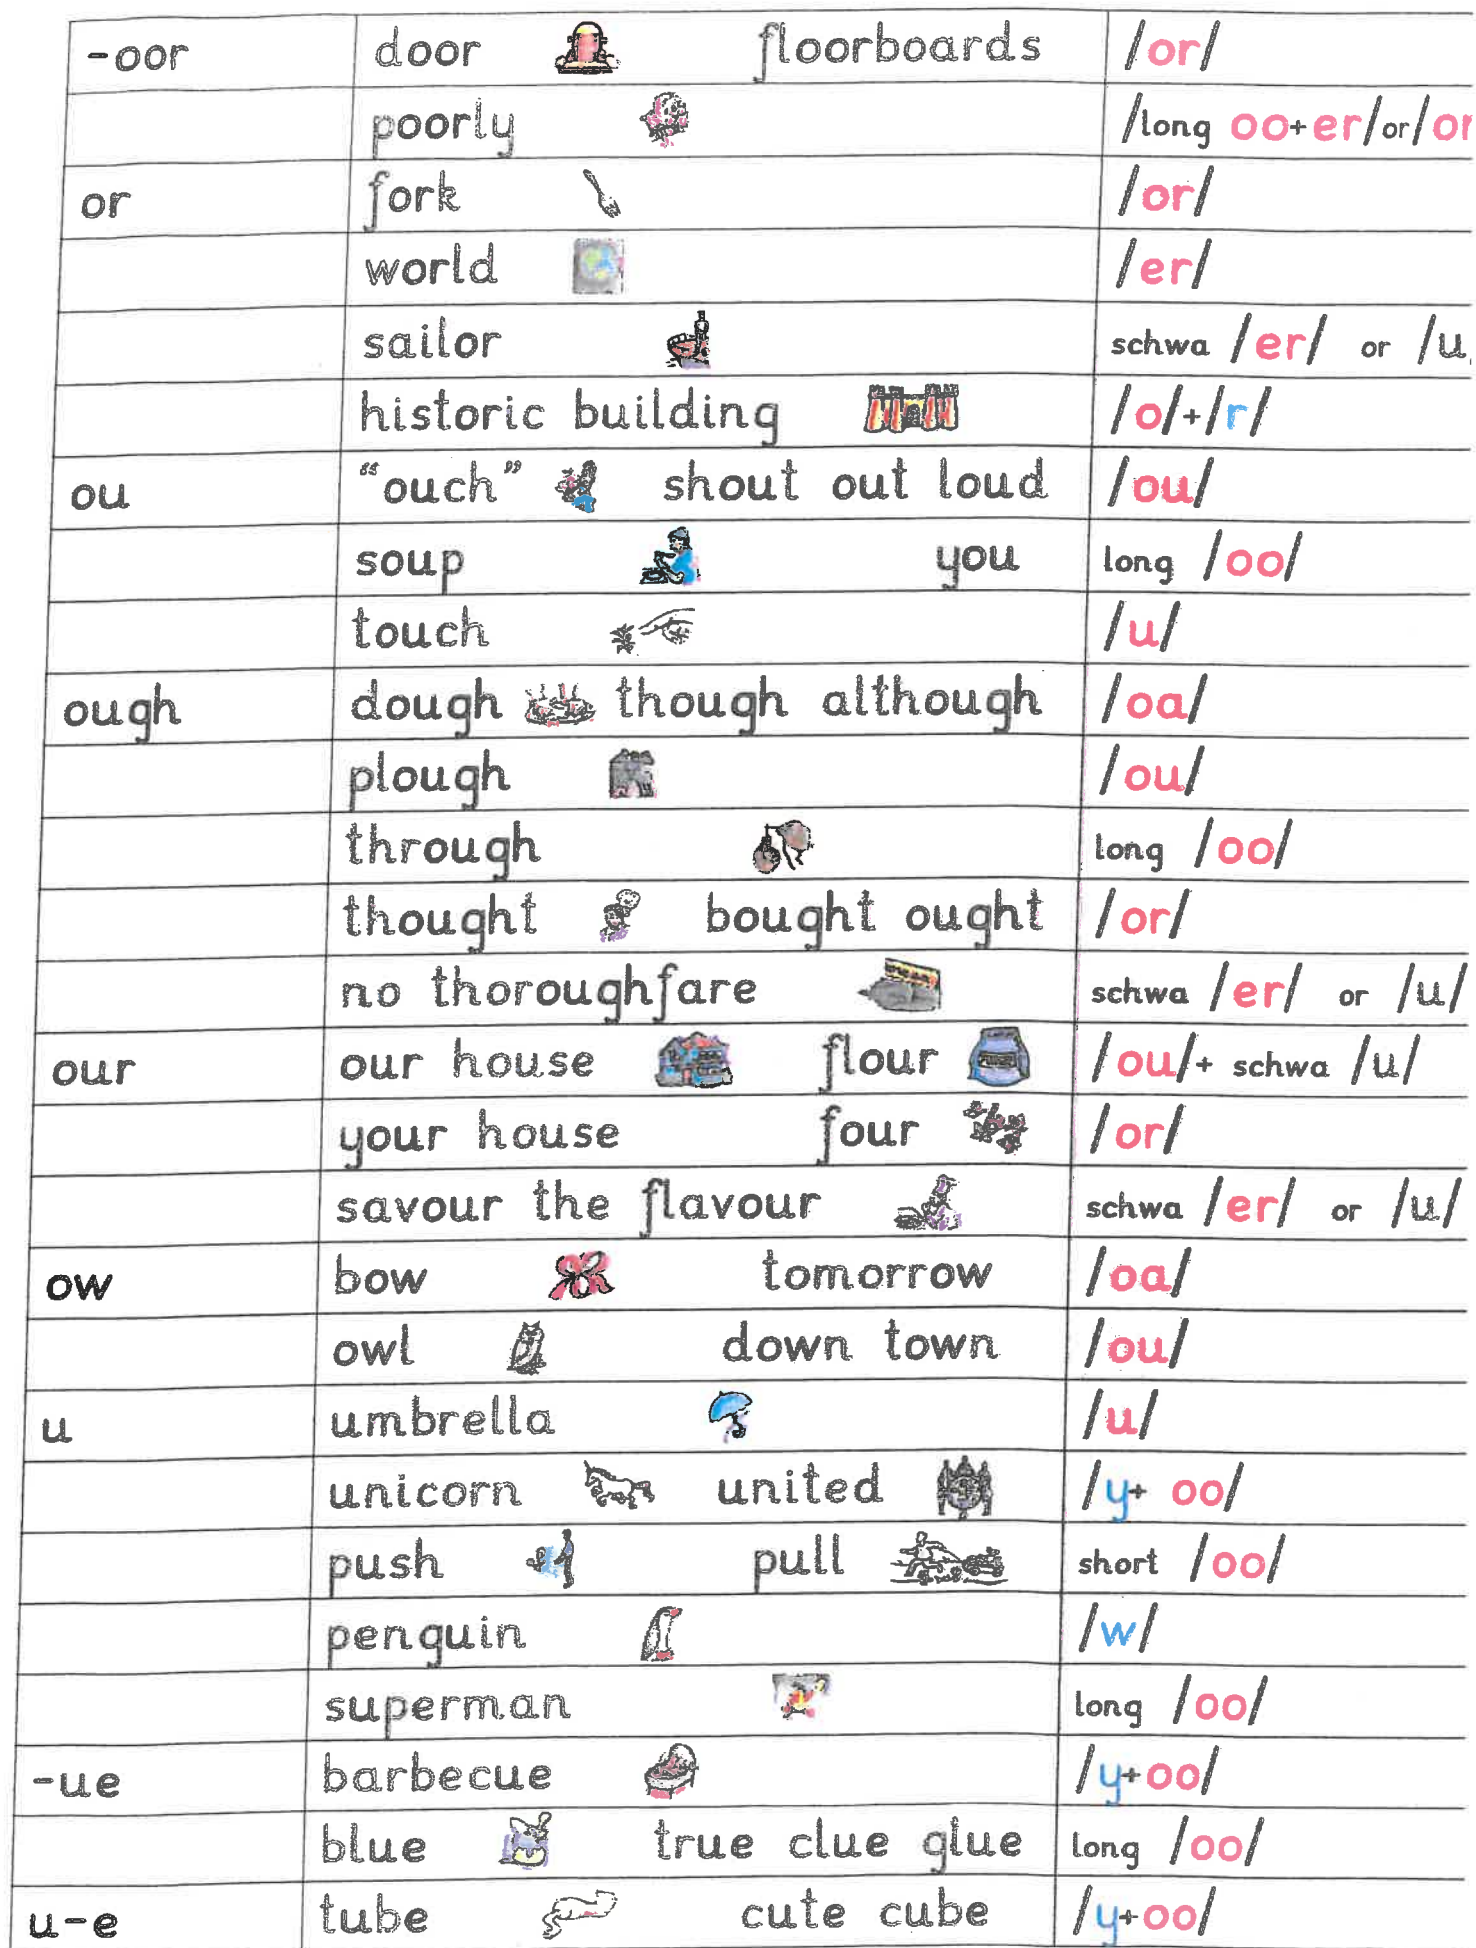 -oor door floorboards /or/
poorly /long oo+er/or/or
or fork /or/
world /er/
sailor schwa /er/ or /u
historic building /o/+/r/
ou “ouch” shout out loud /ou/
soup you long /oo/
touch /u/
ough dough though although /oa/
plough /ou/
through long /oo/
thought bought ought /or/
no thoroughfare schwa /er/ or /u/
our our house flour /ou/+ schwa /u/
your house four /or/
savour the flavour schwa /er/ or /u/
ow bow tomorrow /oa/
owl down town /ou/
u umbrella /u/
unicorn united /y+ oo/
push pull short /oo/
penguin /w/
superman long /oo/
-ue barbecue /y+oo/
blue true clue glue long /oo/
u-e tube cute cube /y+oo/